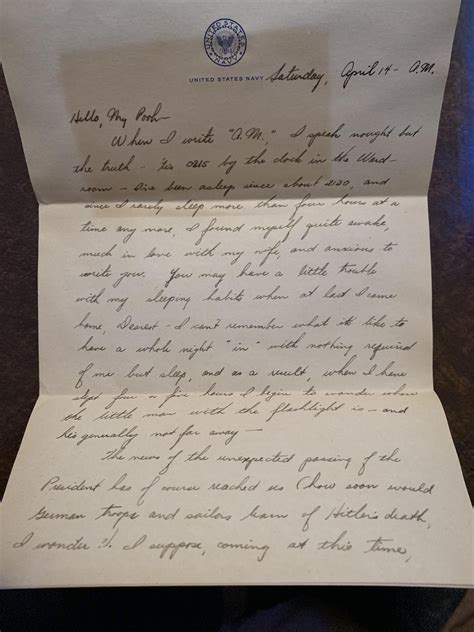 UNITED STATES NAVY
Saturday, April 14 - A.M.
Hello, My Pooh-
When I write "A.M.", I speak nought but
the truth - 'tis 0215 by the clock in the Ward-
room - I've been asleep since about 2130, and
since I rarely sleep more than four hours at a
time any more, I found myself quite awake,
much in love with my wife, and anxious to
write you. You may have a little trouble
with my sleeping habits when at last I come
home, Dearest - I can't remember what it's like to
have a whole night "in" with nothing required
of me but sleep, and as a result, when I have
slept four or five hours I begin to wonder where
the little man with the flashlight is - and
he's generally not far away -
The news of the unexpected passing of the
President has of course reached us (how soon would
German troops and sailors learn of Hitler's death,
I wonder?). I suppose, coming at this time,